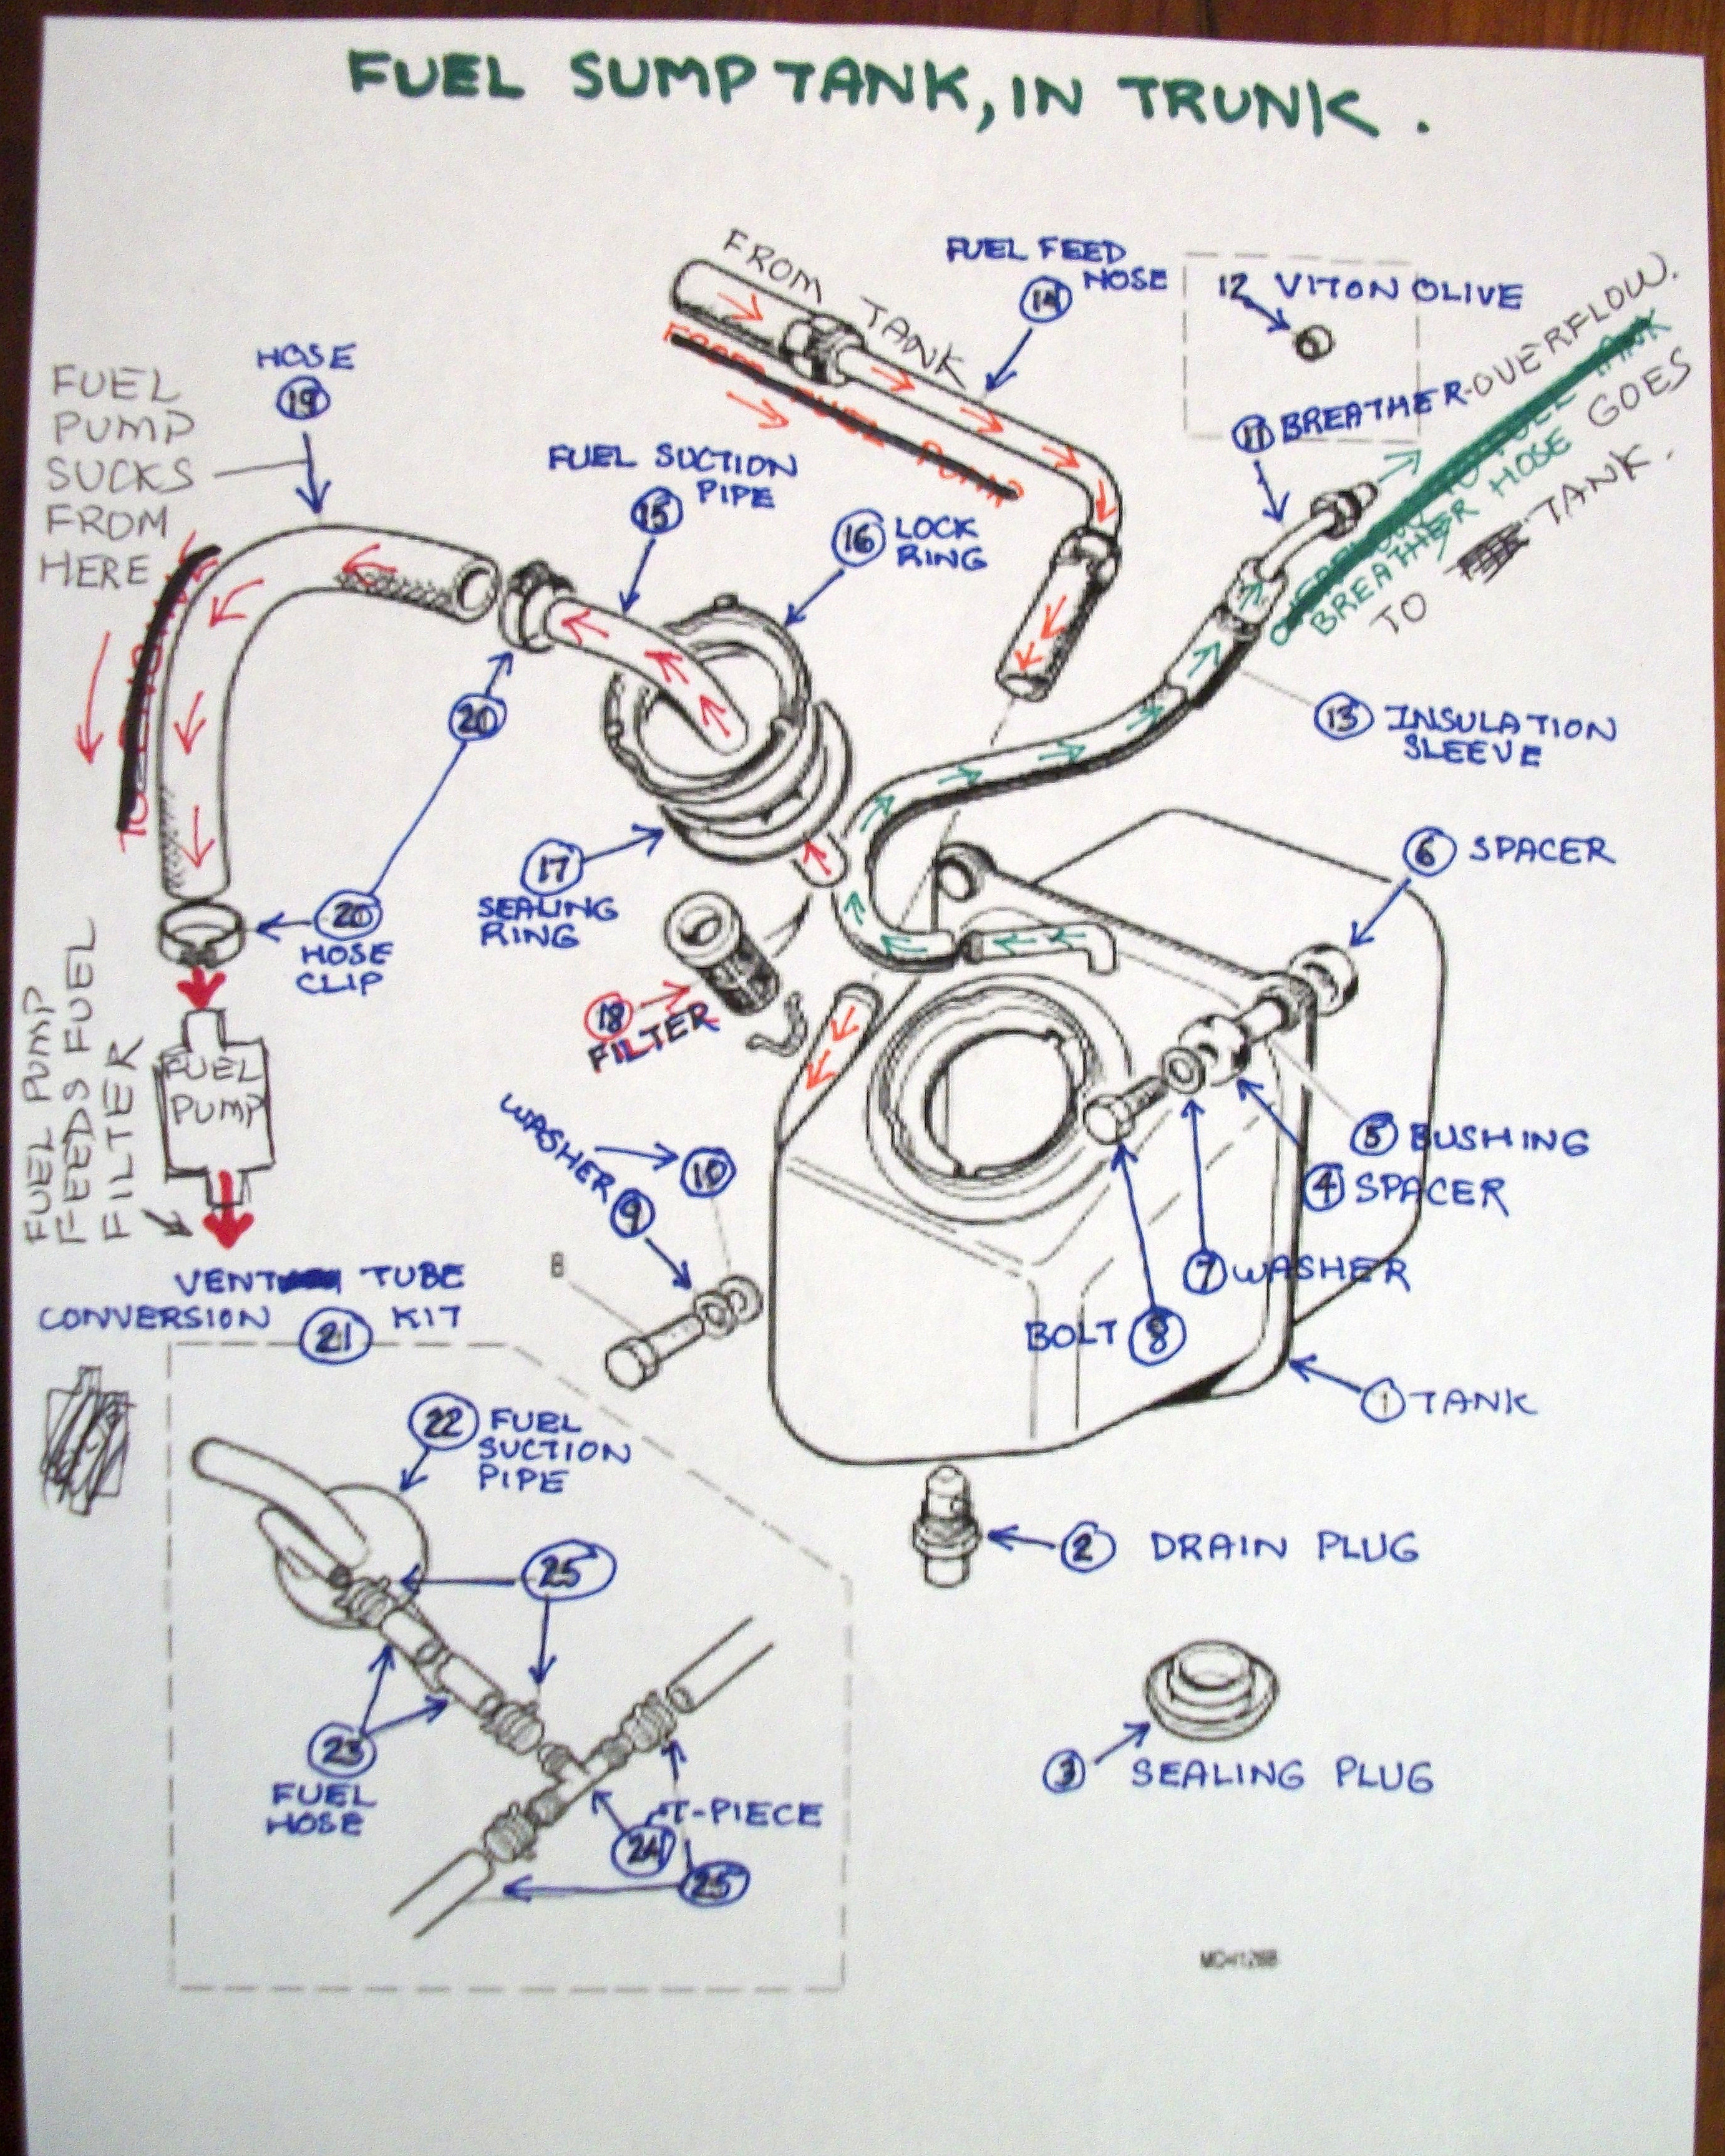 FUEL SUMP TANK, IN TRUNK.
FROM TANK
FUEL FEED
HOSE
14
12 VITON OLIVE
11 BREATHER-OVERFLOW.
BREATHER HOSE GOES
TO TANK.
HOSE
19
FUEL
PUMP
SUCKS
FROM
HERE
FUEL SUCTION
PIPE
15
16 LOCK
RING
FROM FUEL PUMP
20
13 INSULATION
SLEEVE
6 SPACER
17
SEALING
RING
20
HOSE
CLIP
18
FILTER
FUEL PUMP
FEEDS FUEL
FILTER
FUEL
PUMP
WASHER
10
9
5 BUSHING
4 SPACER
7 WASHER
8
BOLT 8
1 TANK
VENT TUBE
CONVERSION KIT
21
22 FUEL
SUCTION
PIPE
2 DRAIN PLUG
25
23
FUEL
HOSE
T-PIECE
24
25
3 SEALING PLUG